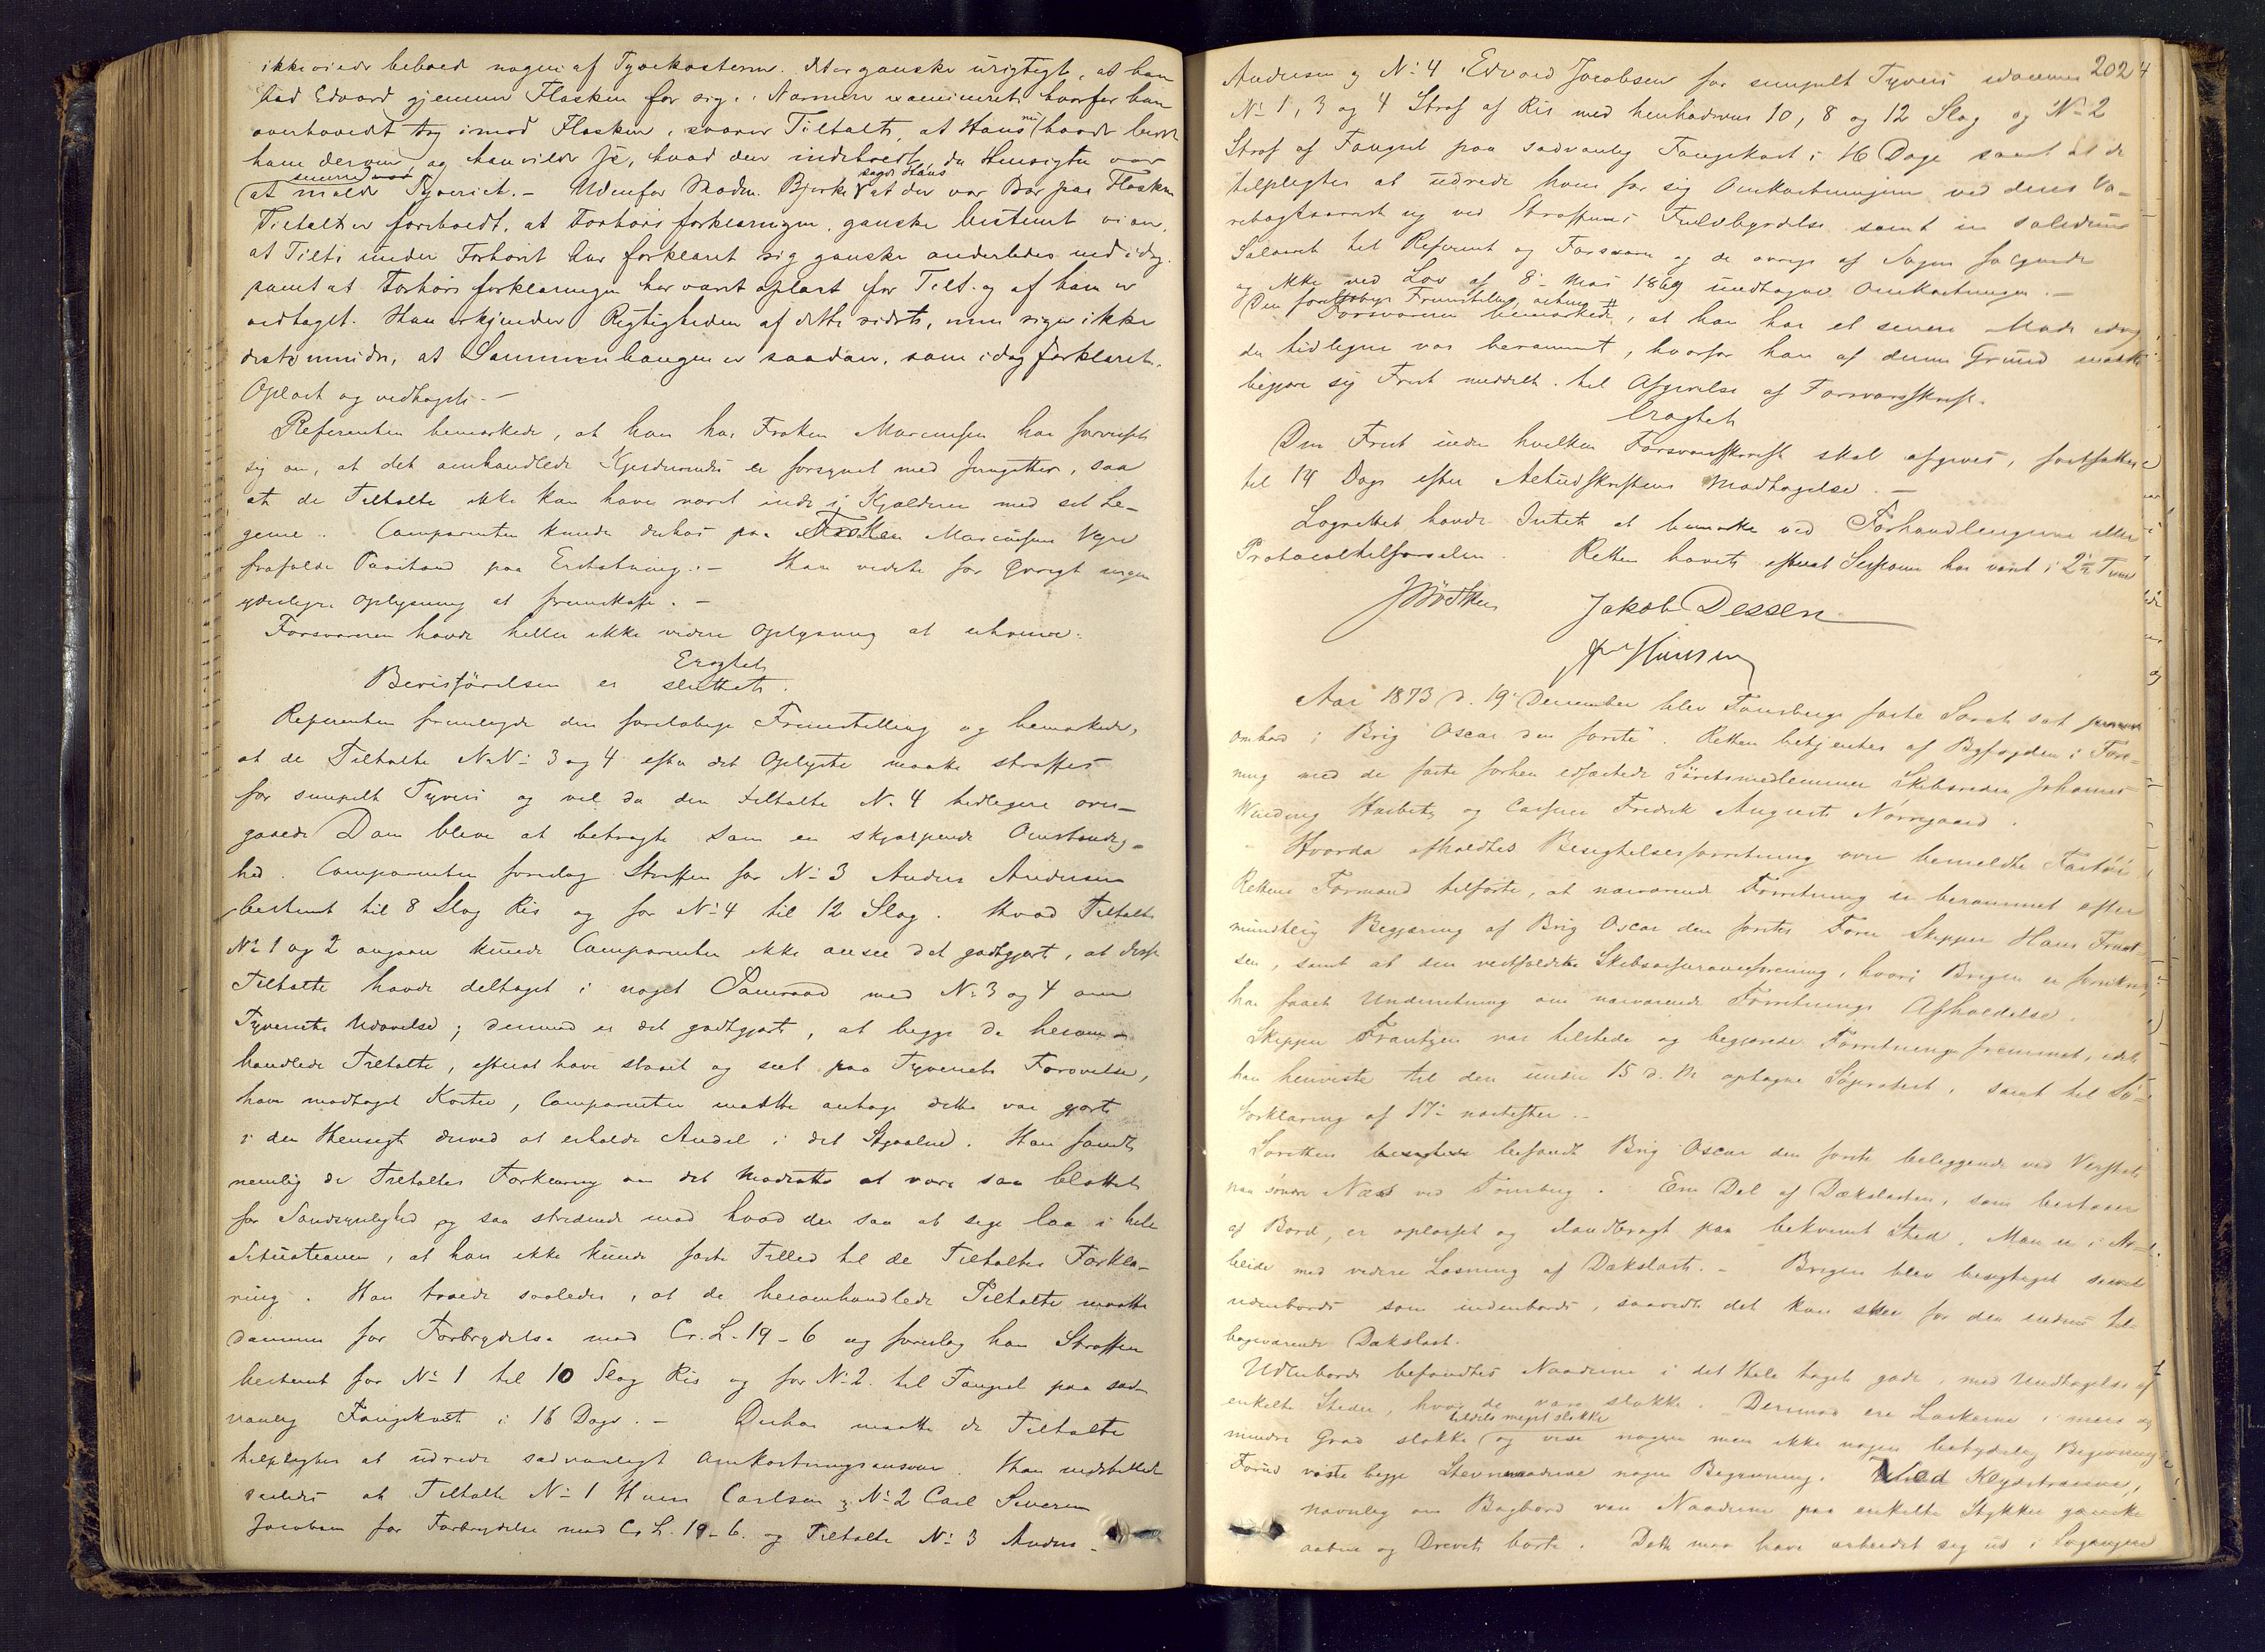 ikke videre beholdt nogen af Tyvekosterne. Det er ganske urigtigt, at han
bad Edvard gjemme Flasken for sig. Nærmere examineret, hvorfor han
overhovedt tog imod Flasken, svarer Tiltalte, at Hans nu havde budt
ham derom og han vilde se, hvad den indeholdt, da Hensigten var
at melde Tyveriet. – Udenfor Madm. Bjerke sagde Hans at der var Bær paa Flasken
Tiltalte er foreholdt, at Forhørsforklaringen ganske bestemt viser,
at Tilt. under Forhøret har forklaret sig ganske anderledes end idag
samt at Forhørsforklaringen har været oplæst for Tilt. og af ham er
vedtaget. Han erkjender Rigtigheden af dette sidste, men siger ikke
destomindre, at Sammenhængen er saadan, som idag forklaret.
Oplæst og vedtaget. –
Referenten bemærkede, at han hos Frøken Marcussen har forvisset
sig om, at det omhandlede Kjældervindu er forsynet med Jerngitter, saa
at de Tiltalte ikke kan have været inde i Kjælderen med sit Le-
geme. Comparenten kunde derhos paa Frøken Marcussens Vegne
frafalde Paastand paa Erstatning. – Han vidste for Øvrigt ingen
yderligere Oplysning at fremskaffe. –
Forsvareren havde heller ikke videre Oplysning at erhverve.
Eragtet
Bevisførelsen er sluttet.
Referenten fremlagde den foreløbige Fremstilling og bemærkede,
at de Tiltalte No 3 og 4 efter det Oplyste maatte straffes
for simpelt Tyveri og vil da den tiltalte No 4 tidligere over-
gaaede Dom blive at betragte som en skjærpende Omstændig-
hed. Comparenten foreslog Straffen for No 3 Anders Andersen
bestemt til 8 Slag Ris og for No 4 til 12 Slag. Hvad Tiltalte
No 1 og 2 angaar kunde Comparenten ikke ansee det godtgjort, at disse
Tiltalte havde deltaget i noget Samraad med No 3 og 4 om
Tyveriets Udøvelse; derimod er det godtgjort, at begge de herom-
handlede Tiltalte, efterat have staaet og seet paa Tyveriets Forøvelse,
have modtaget Koster, Comparenten maatte antage dette var gjort
i den Hensigt derved at erholde Andel i det Stjaalne. Han fandt
nemlig de Tiltaltes Forklaring om det Modsatte at være saa blottet
for Sandsynlighed og saa stridende mod hvad der saa at sige laa i hele
Situationen, at han ikke kunde fæste Tillid til de Tiltaltes Forkla-
ring. Han troede saaledes, at de heromhandlede Tiltalte maatte
dømmes for Forbrydelse mod Cr. L. 19-6 og foreslog han Straffen
bestemt for No 1 til 10 Slag Ris og for No 2 til Fængsel paa sæd-
vanlig Fangekost i 16 Dage. – Derhos maatte de Tiltalte
tilpligtes at udrede sædvanligt Omkostningsansvar. Han indstillede
saaledes at Tiltalte No 1 Hans Carlsen og No 2 Carl Severin
Jacobsen for Forbrydelse mod Cr. L. 19-6. og Tiltalte No 3 Anders
Andersen og No 4 Edvard Jacobsen for simpelt Tyveri idømmes 202
No 1, 3 og 4 Straf af Ris med henholdsvis 10, 8 og 12 Slag og No 2
Straf af Fængsel paa sædvanlig Fangekost i 16 Dage samt at de
tilpligtes at udrede hver for sig Omkostningerne ved deres Va-
retægtsarrest og ved Straffenes Fuldbyrdelse samt in solidum
Salæret til Referent og Forsvarer og de øvrige af Sagen følgende
og ikke ved Lov af 8de Mai 1869 undtagne Omkostninger. –
Den foreløbige Fremstilling
Forsvareren bemærkede, at han har et senere Møde idag
da tidligere var berammet, hvorfor han af denne Grund maatte
begjære sig Frist meddelt til Afgivelse af Forsvarsskrift.
Eragtet
Den Frist inden hvilken Forsvarsskrift skal afgives, fastsættes
til 14 Dage efter Actudskriftens Modtagelse. –
Lagrettet havde Intet at bemærke ved Forhandlingerne eller
Protocoltilførselen. Retten hævet efterat Sessionen har varet i 2½ Time
Jakob Dessen
Hansen
Aar 1873 d. 19de December blev Tønsbergs faste Søret sat
ombord i Brig "Oscar den første". Retten betjentes af Byfogden i Fore-
ning med de faste forhen edfæstede Søretsmedlemmer Skibsreder Johannes
Winding Harbitz og Casper Fredrik August Nørregaard.
Hvorda afholdtes Besigtelsesforretning over bemeldte Fartøi
Rettens Formand tilførte, at nærværende Forretning er berammet efter
mundtlig Begjæring af Brig Oscar den førstes Fører Skipper Hans Frant-
sen, samt at den vestfoldske Skibsassuranceforening, hvori Brigen er forsikret,
har faaet Underretning om nærværende Forretnings Afholdelse.
Skipper Frantzen var tilstede og begjærede Forretningen fremmet, idet
han henviste til den under 15 d. M. optagne Søprotest, samt til Sø-
forklaring af 17de næstefter. –
Søretten befandt Brig Oscar den første beliggende ved Verftet
paa søndre Næs ved Tønsberg. En Del af Dækslasten, som bestaaer
af Bord, er oplosset og ilandbragt paa bekvemt Sted. Man er i Ar-
beide med videre Losning af Dækslast. – Brigen blev besigtiget saavel
udenbords som indenbords, saavidt det kan skee for den endnu til-
bageværende Dækslast.
Udenbords befandtes Naadderne i det Hele taget gode, med Undtagelse af
enkelte Steder, hvor de vare slakke. Derimod ere Laskerne i mere og
mindre Grad slakke tildels meget slakke og vise nogen men ikke nogen betydelig Bøgivning
Forud viste begge Stevnnaadderne nogen Begivning. Ved Klydstræerne,
navnlig om Bagbord vare Naadderne paa enkelte Stykker ganske
aabne og Drevet borte. Dette maa have arbeidet sig ud i Søgangen